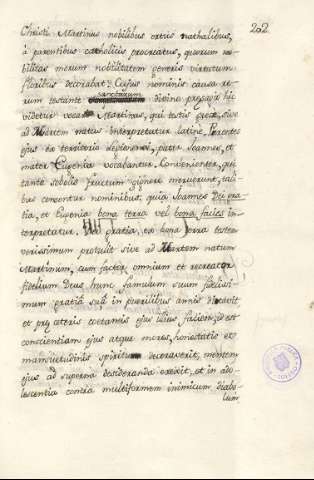 202
Christi Martinus nobilibus ortus nathalibus,
à parentibus catholicis procreatus, quorum no-
bilitas morum nobilitatem generis virtutum
floribus decorabat: Cujus nominis causa ve-
rum testante sanctorum divino presagio hic
videtur vocatus Martinus, qui testis prest, sive
ad Martem natus interpretatur latine. Parentes
ejus de territorio legionensi, pater Joannes, et
mater Eugenia vocabantur. Convenienter, qui
tante sobolis fructum gignere meruerunt, tali-
bus censentur nominibus, quia Joannes Dei gra
tia, et Eugenia bona terra vel bona facies in-
terpretatur. Dei gratia, ex bona terra testem
verissimum protulit sive ad Martem natum
Martinum, cum factor omnium et recreator
fidelium Deus hunc famulum suum fidelissi-
mum gratia sua in puerilibus annis ditavit
et pre ceteris coetaneis ejus illius faciem, id est
conscientiam ejus atque mores, honestatis et
mansuetudinis spiritu decoraverit, mentem
ejus ad superna desideranda erexit, et in ado-
lescentia contra multiformem inimicum diabo-
lum